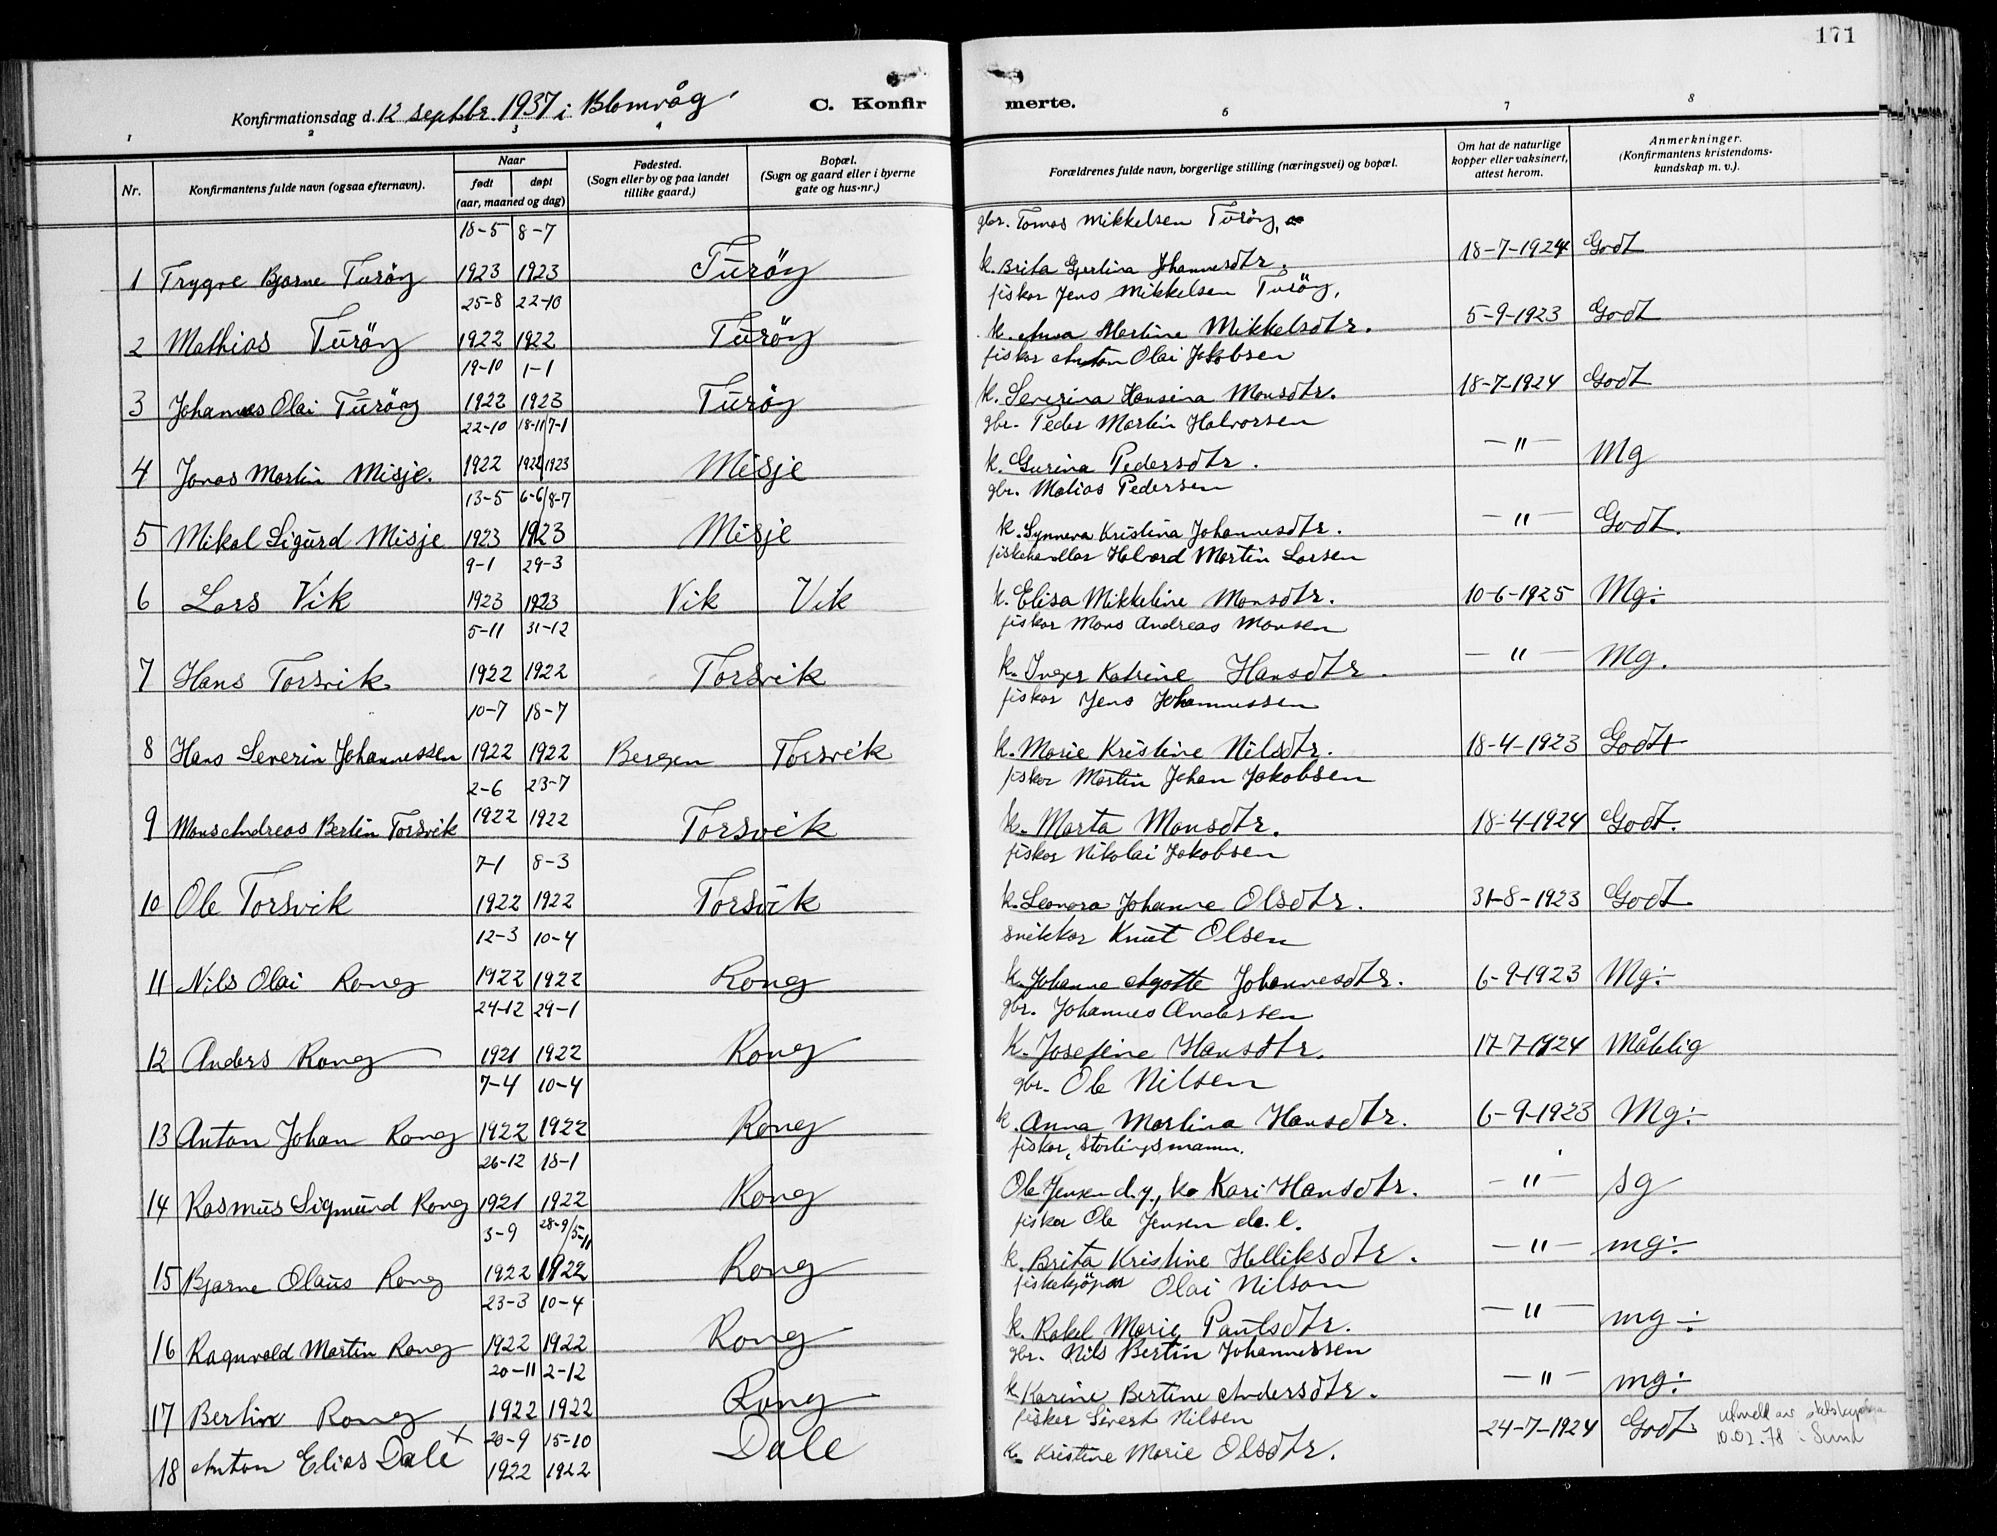 171
Konfirmationsdag d. 12 septbr. 1937 i Blomvåg
C. Konfirmerte.
1 2 3 4 6 7 8
Nr.
Konfirmantens fulde navn (ogsaa efternavn).
Naar
født døpt
(aar, maaned og dag)
Fødested.
(Sogn eller by og paa landet
tillike gaard.)
Bopæl.
(Sogn og gaard eller i byerne
gate og hus-nr.)
Forældrenes fulde navn, borgerlige stilling (næringsvei) og bopæl.
Om hat de naturlige
kopper eller vaksinert,
attest herom.
Anmerkninger.
(Konfirmantens kristendoms-
kundskap m. v.).
18-5 8-7 gbr. Tomas Mikkelsen Turöy,
1 Trygve Bjarne Turöy 1923 1923 Turöy k. Brita Gjertina Johannesdtr. 18-7-1924 Godt
25-8 22-10 fisker Jens Mikkelsen Turöy,
2 Mathias Turöy 1922 1922 Turöy k. Anna Martine Mikkelsdtr. 5-9-1923 Godt
19-10 1-1 fisker Anton Olai Jakobsen
3 Johannes Olai Turöy 1922 1923 Turöy k. Severina Hansina Monsdtr. 18-7-1924 Godt
22-10 18-11/7-1 gbr. Peder Martin Halvorsen
4 Jonas Martin Misje. 1922 1922/1923 Misje k. Gurina Pedersdtr. -"- Mg
13-5 6-6/8-7 gbr. Matias Pedersen
5 Mikal Sigurd Misje 1923 1923 Misje k. Synneva Kristina Johannesdtr. -"- Godt.
9-1 29-3 fiskehandler Halvard Martin Larsen
6 Lars Vik 1923 1923 Vik Vik k. Elisa Mikkeline Monsdtr. 10-6-1925 Mg÷
5-11 31-12 fisker Mons Andreas Monsen
7 Hans Torsvik 1922 1922 Torsvik k. Inger Katrine Hansdtr. -"- Mg.
10-7 18-7 fisker Jens Johannessen
8 Hans Severin Johannessen 1922 1922 Bergen Torsvik k. Marie Kristine Nilsdtr. 18-4-1923 Godt
2-6 23-7 fisker Martin Johan Jakobsen
9 Mons Andreas Bertin Torsvik 1922 1922 Torsvik k. Marta Monsdtr. 18-4-1924 Godt.
7-1 8-3 fisker Nikolai Jakobsen
10 Ole Torsvik 1922 1922 Torsvik k. Leonora Johanne Olsdtr. 31-8-1923 Godt
12-3 10-4 snikker Knut Olsen
11 Nils Olai Rong 1922 1922 Rong k. Johanne Agotte Johannesdtr. 6-9-1923 Mg÷
24-12 29-1 gbr. Johannes Andersen
12 Anders Rong 1921 1922 Rong k. Josefine Hansdtr. 17-7-1924 Måtelig
7-4 10-4 gbr. Ole Nilsen
13 Anton Johan Rong 1922 1922 Rong k. Anna Martina Hansdtr. 6-9-1923 Mg÷
26-12 18-1 fisker, Stortingsmann.
14 Rasmus Sigmund Rong 1921 1922 Rong Ole Jensen d.y., k. Kari Hansdtr. -"- Sg
3-9 28-9/5-11 fisker Ole Jensen d. e.
15 Bjarne Olaus Rong 1922 1922 Rong k. Brita Kristine Helliksdtr. -"- mg÷
23-3 10-4 fiskekjöpar Olai Nilson
16 Ragnvald Martin Rong 1922 1922 Rong k. Rakel Marie Paulsdtr. -"- mg÷
20-11 2-12 gbr. Nils Bertin Johannessen
17 Bertin Rong 1922 1922 Rong k. Karine Bertine Andersdtr. -"- mg÷
20-9 15-10 fisker Sivert Nilsen
18 Anton Elias Dale x 1922 1922 Dale k. Kristine Marie Olsdtr. 24-7-1924 Godt
utmeld av statskyrkja
10.02.78 i Sund